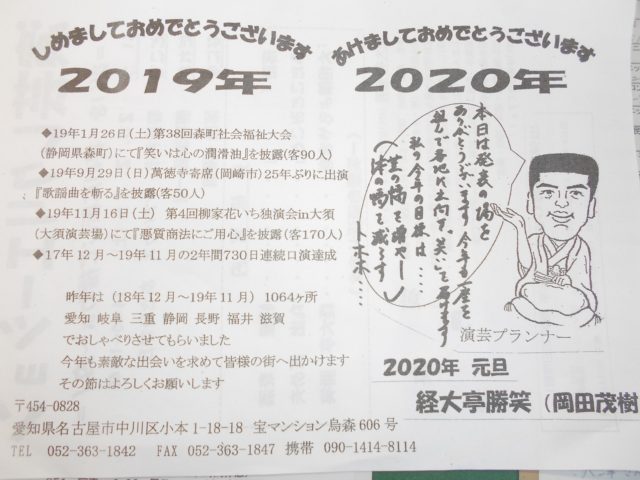 しめましておめでとうございます
2019年
あけましておめでとうございます
2020年
◆19年1月26日(土)第38回森町社会福祉大会
(静岡県森町)にて『笑いは心の潤滑油』を披露(客90人)
◆19年9月29日(日)萬徳寺寄席(岡崎市)25年ぶりに出演
『歌謡曲を斬る』を披露(客50人)
◆19年11月16日(土) 第4回柳家花いち独演会in大須
(大須演芸場)にて『悪質商法にご用心』を披露(客170人)
◆17年12月～19年11月の2年間730日連続口演達成
昨年は(18年12月～19年11月) 1064ヶ所
愛知 岐阜 三重 静岡 長野 福井 滋賀
でおしゃべりさせてもらいました
今年も素敵な出会いを求めて皆様の街へ出かけます
その節はよろしくお願いします
本日は発表の場を
ありがとうございます。今年も一座を
組んで各地に出向き、笑いを届けます
私の今年の目標は…
芸の幅を増やし
体の幅を減らす
トホホ…
演芸プランナー
2020年 元旦
経大亭勝笑 (岡田茂樹
〒454-0828
愛知県名古屋市中川区小本1-18-18 宝マンション烏森606号
TEL 052-363-1842 FAX 052-363-1847 携帯 090-1414-8114